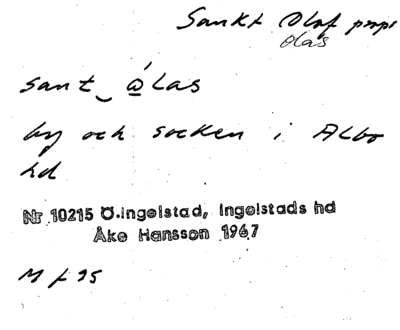 Sankt Olof props
olas
sant‿ ò̲las
by och socken i Albo
hd
Nr 10215 Ö.Ingelstad, Ingelstads hd
Åke Hansson 1967
M f 95